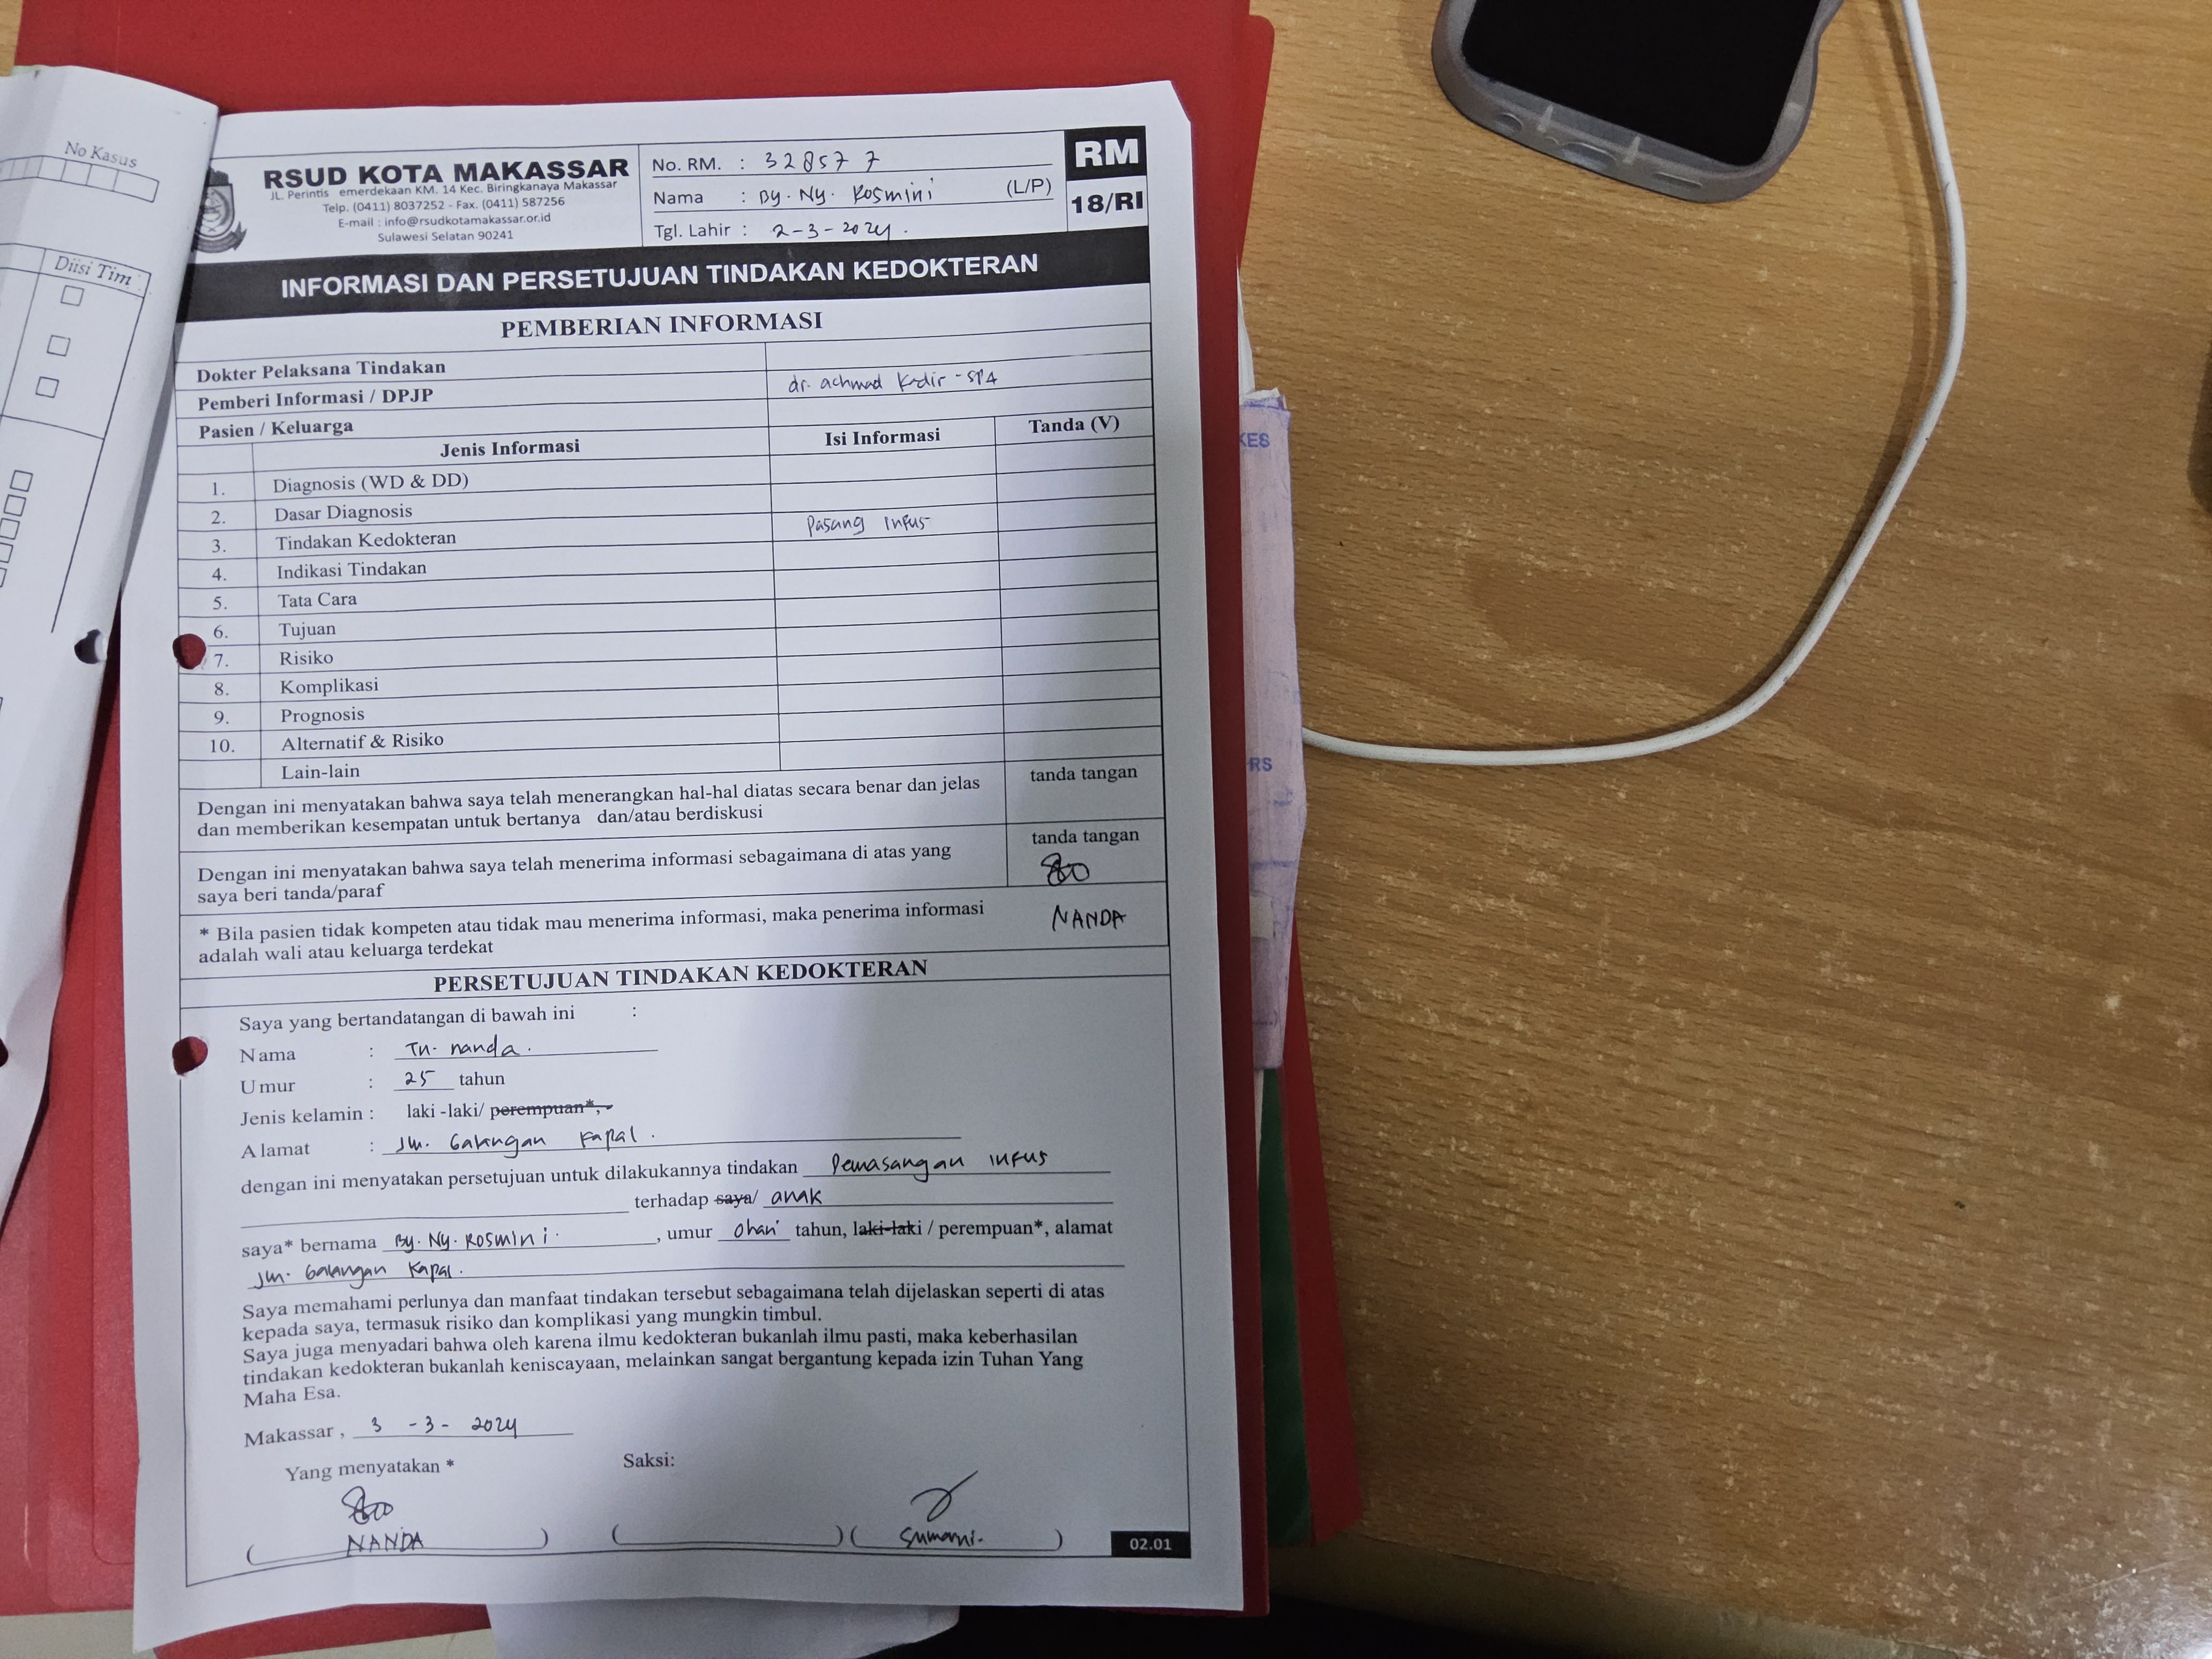 No Kasus
Diisi Tim
RSUD KOTA MAKASSAR
JL. Perintis emerdekaan KM. 14 Kec. Biringkanaya Makassar
Telp. (0411) 8037252 - Fax. (0411) 587256
E-mail : info@rsudkotamakassar.or.id
Sulawesi Selatan 90241
No. RM. : 328577
Nama : By. Ny. Rosmini (L/P)
Tgl. Lahir : 2-3-2024.
RM
18/RI
INFORMASI DAN PERSETUJUAN TINDAKAN KEDOKTERAN
PEMBERIAN INFORMASI
Dokter Pelaksana Tindakan
Pemberi Informasi / DPJP dr. achmad Kadir-SPA
Pasien / Keluarga
Jenis Informasi Isi Informasi Tanda (V)
1. Diagnosis (WD & DD)
2. Dasar Diagnosis
3. Tindakan Kedokteran Pasang Infus
4. Indikasi Tindakan
5. Tata Cara
6. Tujuan
7. Risiko
8. Komplikasi
9. Prognosis
10. Alternatif & Risiko
Lain-lain
Dengan ini menyatakan bahwa saya telah menerangkan hal-hal diatas secara benar dan jelas
dan memberikan kesempatan untuk bertanya dan/atau berdiskusi
tanda tangan
Dengan ini menyatakan bahwa saya telah menerima informasi sebagaimana di atas yang
saya beri tanda/paraf
tanda tangan
* Bila pasien tidak kompeten atau tidak mau menerima informasi, maka penerima informasi
adalah wali atau keluarga terdekat
NANDA
PERSETUJUAN TINDAKAN KEDOKTERAN
Saya yang bertandatangan di bawah ini :
Nama : Tn. nanda.
Umur : 25 tahun
Jenis kelamin : laki -laki/ perempuan*,
Alamat : Jln. Galangan Kapal.
dengan ini menyatakan persetujuan untuk dilakukannya tindakan Pemasangan infus
terhadap saya/ anak
saya* bernama By. Ny. Rosmini. , umur 0hari tahun, laki-laki / perempuan*, alamat
Jln. Galangan Kapal.
Saya memahami perlunya dan manfaat tindakan tersebut sebagaimana telah dijelaskan seperti di atas
kepada saya, termasuk risiko dan komplikasi yang mungkin timbul.
Saya juga menyadari bahwa oleh karena ilmu kedokteran bukanlah ilmu pasti, maka keberhasilan
tindakan kedokteran bukanlah keniscayaan, melainkan sangat bergantung kepada izin Tuhan Yang
Maha Esa.
Makassar , 3 - 3 - 2024
Yang menyatakan * Saksi:
( NANDA ) ( ) ( Sumarni. )
02.01
RS
KES